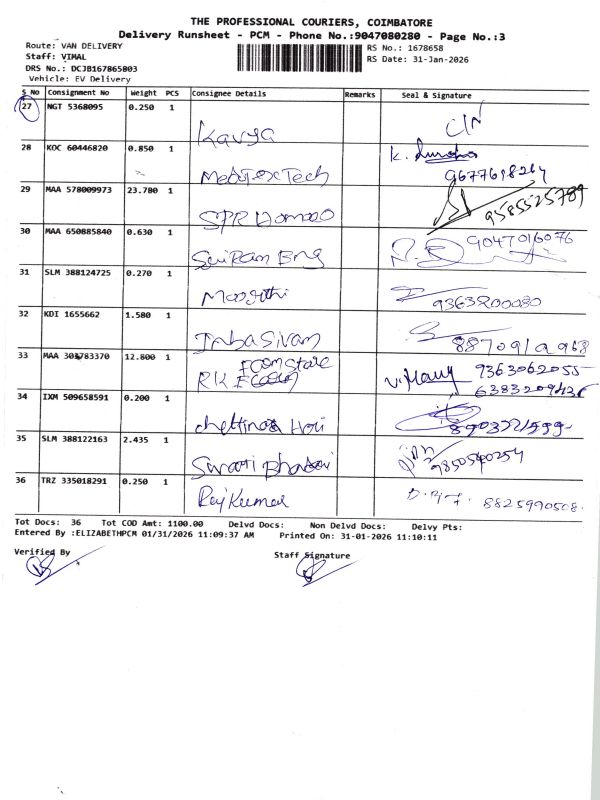 THE PROFESSIONAL COURIERS, COIMBATORE
Delivery Runsheet - PCM - Phone No.:9047080280 - Page No.:3
Route: VAN DELIVERY
RS No.: 1678658
Staff: VIMAL
RS Date: 31-Jan-2026
DRS No.: DCJB167865803
Vehicle: EV Delivery
S No Consignment No Weight PCS Consignee Details Remarks Seal & Signature
27 NGT 5368095 0.250 1
Kavya
28 KOC 60446820 0.850 1
K.
Medtex Tech 9677698264
29 MAA 578009973 23.780 1
SPR 9585525789
30 MAA 650885840 0.630 1
9047016076
Sai Ram Eng
31 SLM 388124725 0.270 1
9363200080
32 KDI 1655662 1.580 1
Inba Sivam 8870919968
33 MAA 303783370 12.800 1
Ecom Store 9363062055
RK
34 IXM 509658591 0.200 1
35 SLM 388122163 2.435 1
9850540254
36 TRZ 335018291 0.250 1
Raj Kumar 8825990508
Tot Docs: 36 Tot COD Amt: 1100.00 Delvd Docs: Non Delvd Docs: Delvy Pts:
Entered By :ELIZABETHPCM 01/31/2026 11:09:37 AM Printed On: 31-01-2026 11:10:11
Verified By
Staff Signature